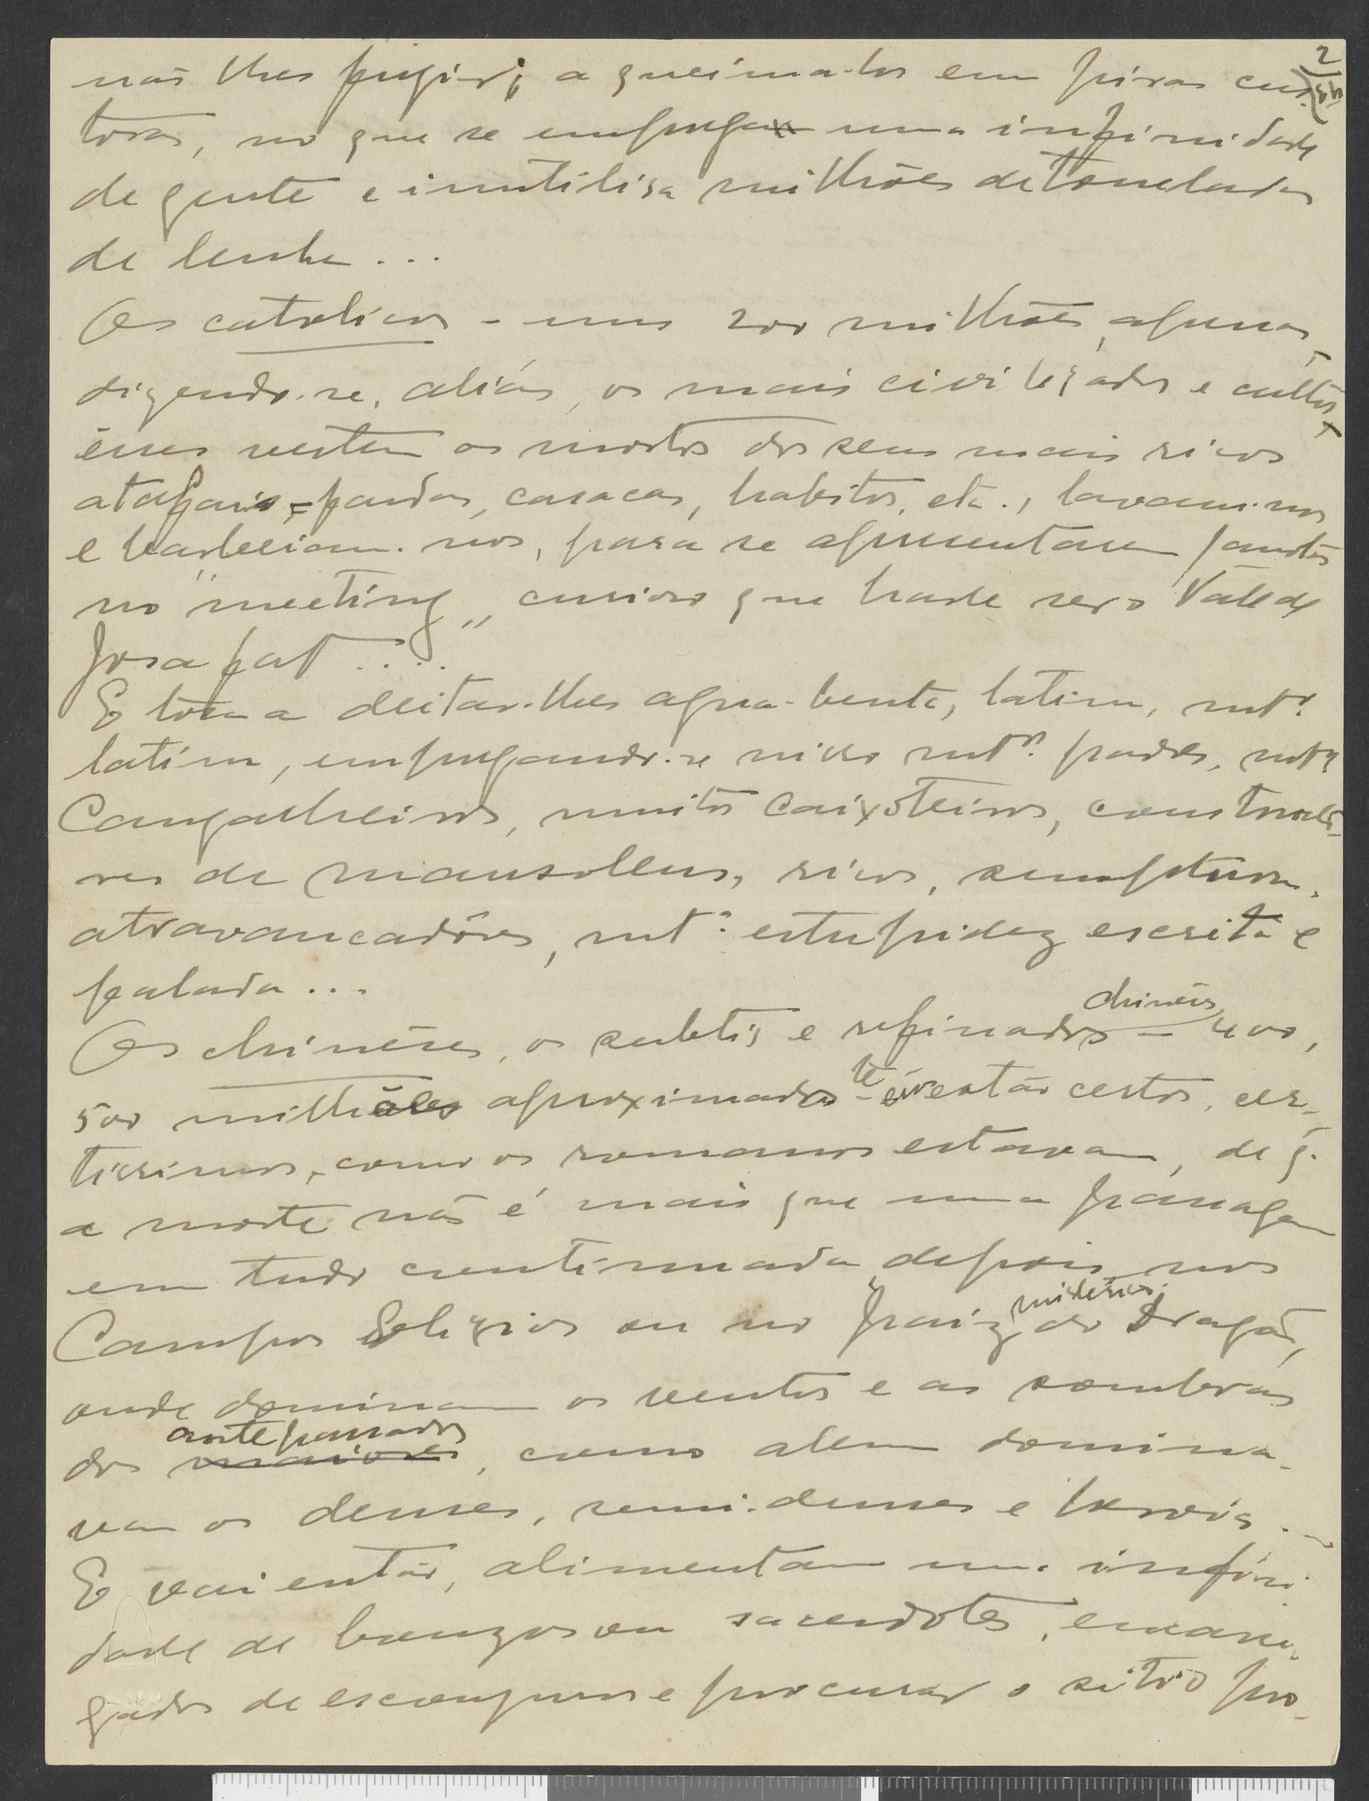 não lhes fugir; a queima-los em piras cus-
tosas, no que se emprega uma infinidade
de gente e inutilisa milhões de toneladas
de lenha ...
Os catolicos - uns 200 milhões, apenas,
dizendo-se, aliás, os mais civilizados e cultos,
êsses vestem os mortos dos seus mais ricos
atafais, fardas, casacas, habitos, etc., lavam-nos
e barbeiam-nos, para se apresentarem janotas
no "meeting" curioso que hade ser o Vale de
Josafat ....
E toca a deitar-lhes agua-benta, latim, mtº
latim, empregando-se nisso mtºs padres, mtºs
Cangalheiros, muitos Caixoteiros, constructo-
res de mausoleus, ricos, sumptuosos,
atravancadôres, mtª estupidez escrita e
falada ...
Os chinêses, os subtis e refinados chinêses - 400,
500 milhões aproximadamte - êsses estão certos, cer-
tissimos, como os romanos estavam, de q.
a morte não é mais que uma passagem
em tudo continuada depois nos
Campos Elizios ou no paiz misterioso do Dragão,
onde dominam os ventos e as sombras
dos maiores antepassados, como alem domina-
vam os deuses, semi-deuses e heróis ...
E vai então, alimentam uma infini-
dade de bonzos ou sacerdotes, encarre-
gados de esconjuros e procurar o sitio pro-